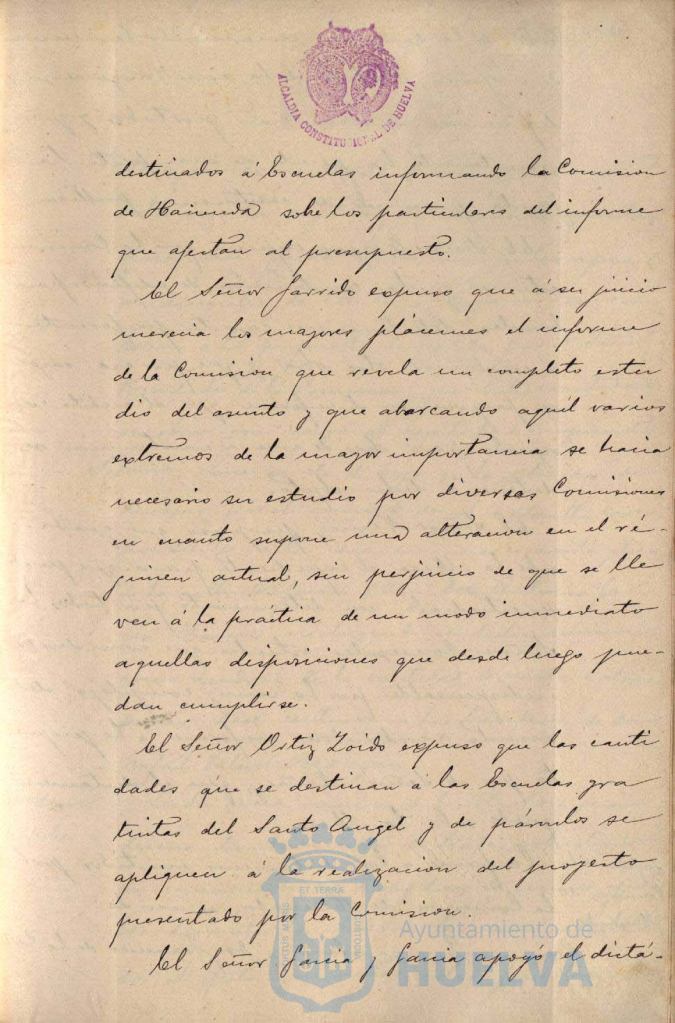 ALCALDIA CONSTITUCIONAL DE HUELVA
destinados á Escuelas informando la Comision
de Hacienda sobre los particulares del informe
que afectan al presupuesto.
El Señor Garrido expuso que á su juicio
merecia los mayores plácemes el informe
de la Comision que revela un completo estu
dio del asunto y que abarcando aquél varios
extremos de la mayor importancia se hacia
necesario su estudio por diversas Comisiones
en cuanto supone una alteracion en el ré-
gimen actual, sin perjuicio de que se lle
ven á la práctica de un modo inmediato
aquellas disposiciones que desde luego pue-
dan cumplirse.
El Señor Ortiz Zoido expuso que las canti
dades que se destinan á las Escuelas gra
tuitas del Santo Angel y de párvulos se
apliquen á la realizacion del proyecto
presentado por la Comision.
El Señor Garcia y Garcia apoyó el dictá-
ET TERRÆ
Ayuntamiento de
HUELVA